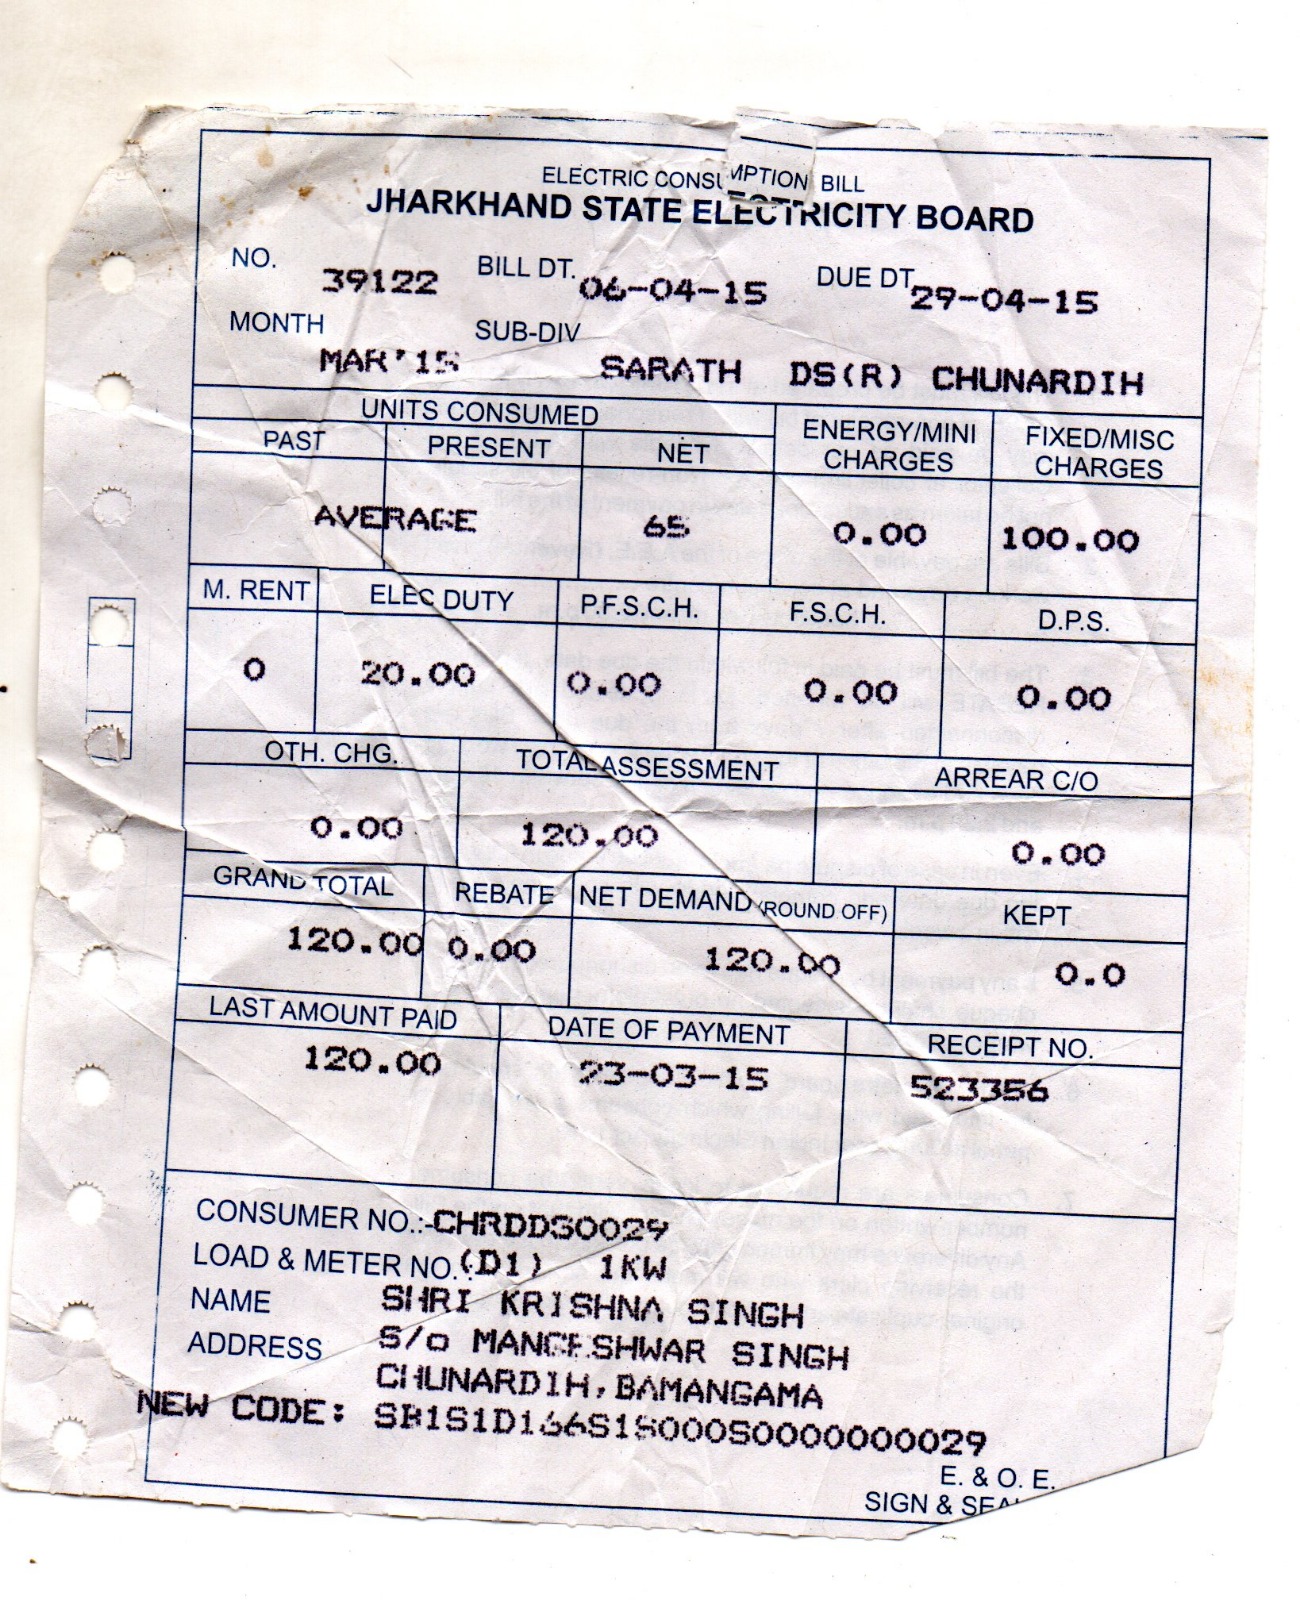 ELECTRIC CONSUMPTION BILL
JHARKHAND STATE ELECTRICITY BOARD
NO. 39122 BILL DT. 06-04-15 DUE DT 29-04-15
MONTH MAR'15 SUB-DIV SARATH DS(R) CHUNARDIH
UNITS CONSUMED
PAST PRESENT NET
ENERGY/MINI CHARGES
FIXED/MISC CHARGES
AVERAGE 65 0.00 100.00
M. RENT ELEC DUTY P.F.S.C.H. F.S.C.H. D.P.S.
0 20.00 0.00 0.00 0.00
OTH. CHG. TOTAL ASSESSMENT ARREAR C/O
0.00 120.00 0.00
GRAND TOTAL REBATE NET DEMAND (ROUND OFF) KEPT
120.00 0.00 120.00 0.0
LAST AMOUNT PAID DATE OF PAYMENT RECEIPT NO.
120.00 23-03-15 523356
CONSUMER NO.:-
LOAD & METER NO.: (D1) 1KW
NAME SHRI KRISHNA SINGH
ADDRESS S/o MANGESHWAR SINGH
CHUNARDIH, BAMANGAMA
NEW CODE:
E. & O. E.
SIGN & SEAL